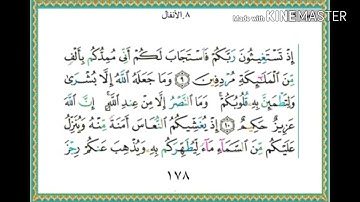 ٨ـ الأنفال
Made with KINEMASTER
إِذْ تَسْتَغِيثُونَ رَبَّكُمْ فَٱسْتَجَابَ لَكُمْ أَنِّى مُمِدُّكُم بِأَلْفٍ
مِّنَ ٱلْمَلَٰٓئِكَةِ مُرْدِفِينَ ٩ وَمَا جَعَلَهُ ٱللَّهُ إِلَّا بُشْرَىٰ
وَلِتَطْمَئِنَّ بِهِۦ قُلُوبُكُمْ ۚ وَمَا ٱلنَّصْرُ إِلَّا مِنْ عِندِ ٱللَّهِ ۚ إِنَّ ٱللَّهَ
عَزِيزٌ حَكِيمٌ ١٠ إِذْ يُغَشِّيكُمُ ٱلنُّعَاسَ أَمَنَةً مِّنْهُ وَيُنَزِّلُ
عَلَيْكُم مِّنَ ٱلسَّمَآءِ مَآءً لِّيُطَهِّرَكُم بِهِۦ وَيُذْهِبَ عَنكُمْ رِجْزَ
١٧٨